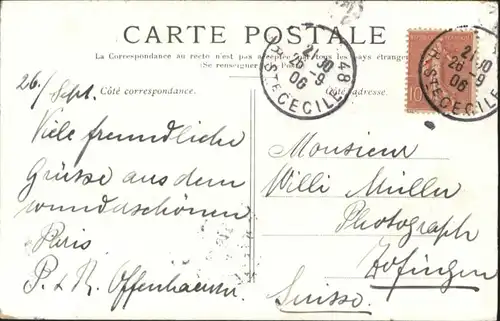 CARTE POSTALE
La Correspondance au recto n'est pas acceptée par tous les pays étrangers
(Se renseigner à la Poste)
Côté correspondance.
Côté adresse.
26/Sept.
Viele freundliche
Grüsse aus dem
wunderschönen
Paris
P. & R. Offenhäuser
Monsieur
Willi Müller
Photograph
Zofingen
Suisse.
48
STE CECILE
2 10
26 -9
06
10
2 10
26 -9
06
STE CECILE